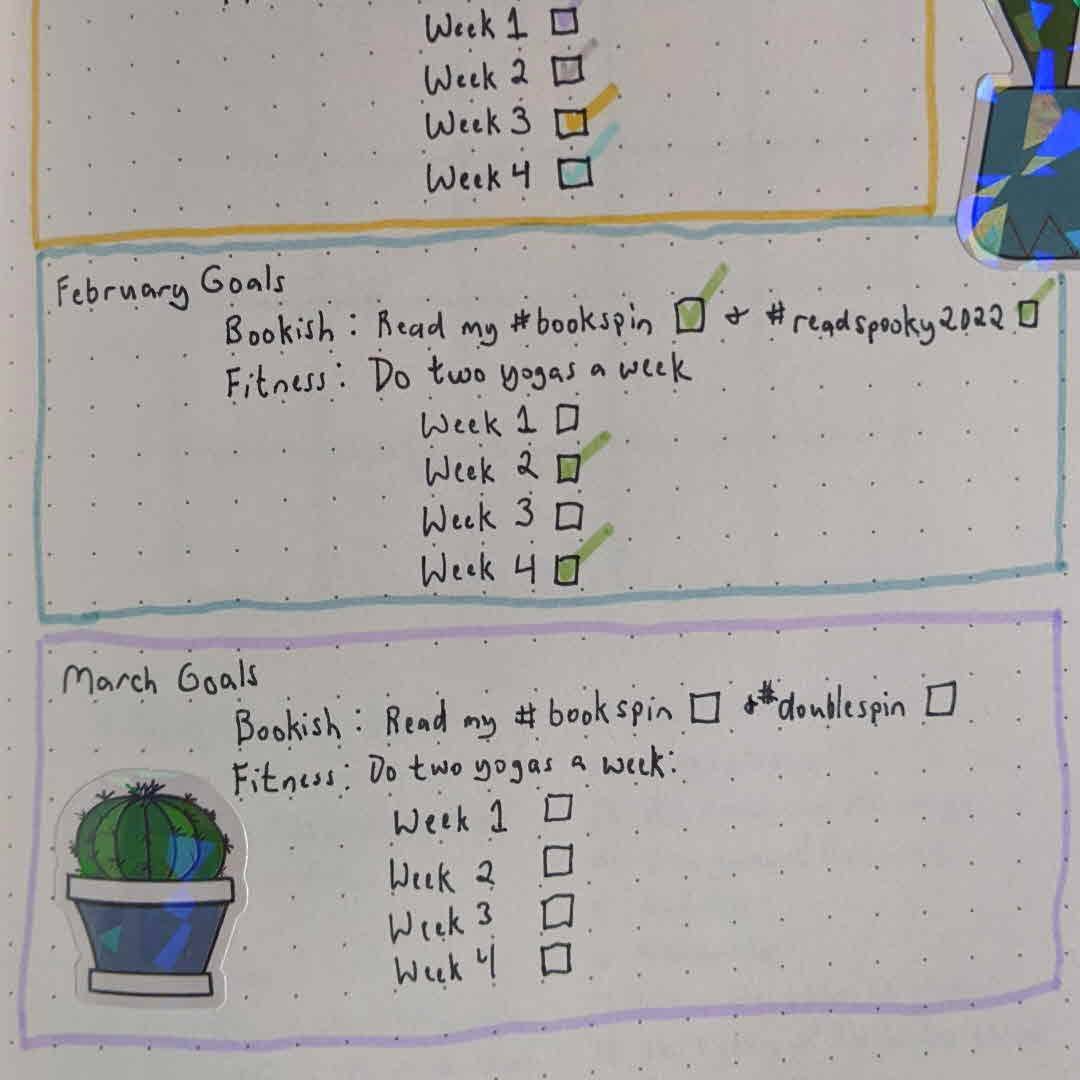 Week 1
Week 2
Week 3
Week 4
February Goals
Bookish: Read my #bookspin & #readspooky2022
Fitness: Do two yogas a week
Week 1
Week 2
Week 3
Week 4
March Goals
Bookish: Read my #bookspin & #doublespin
Fitness: Do two yogas a week:
Week 1
Week 2
Week 3
Week 4